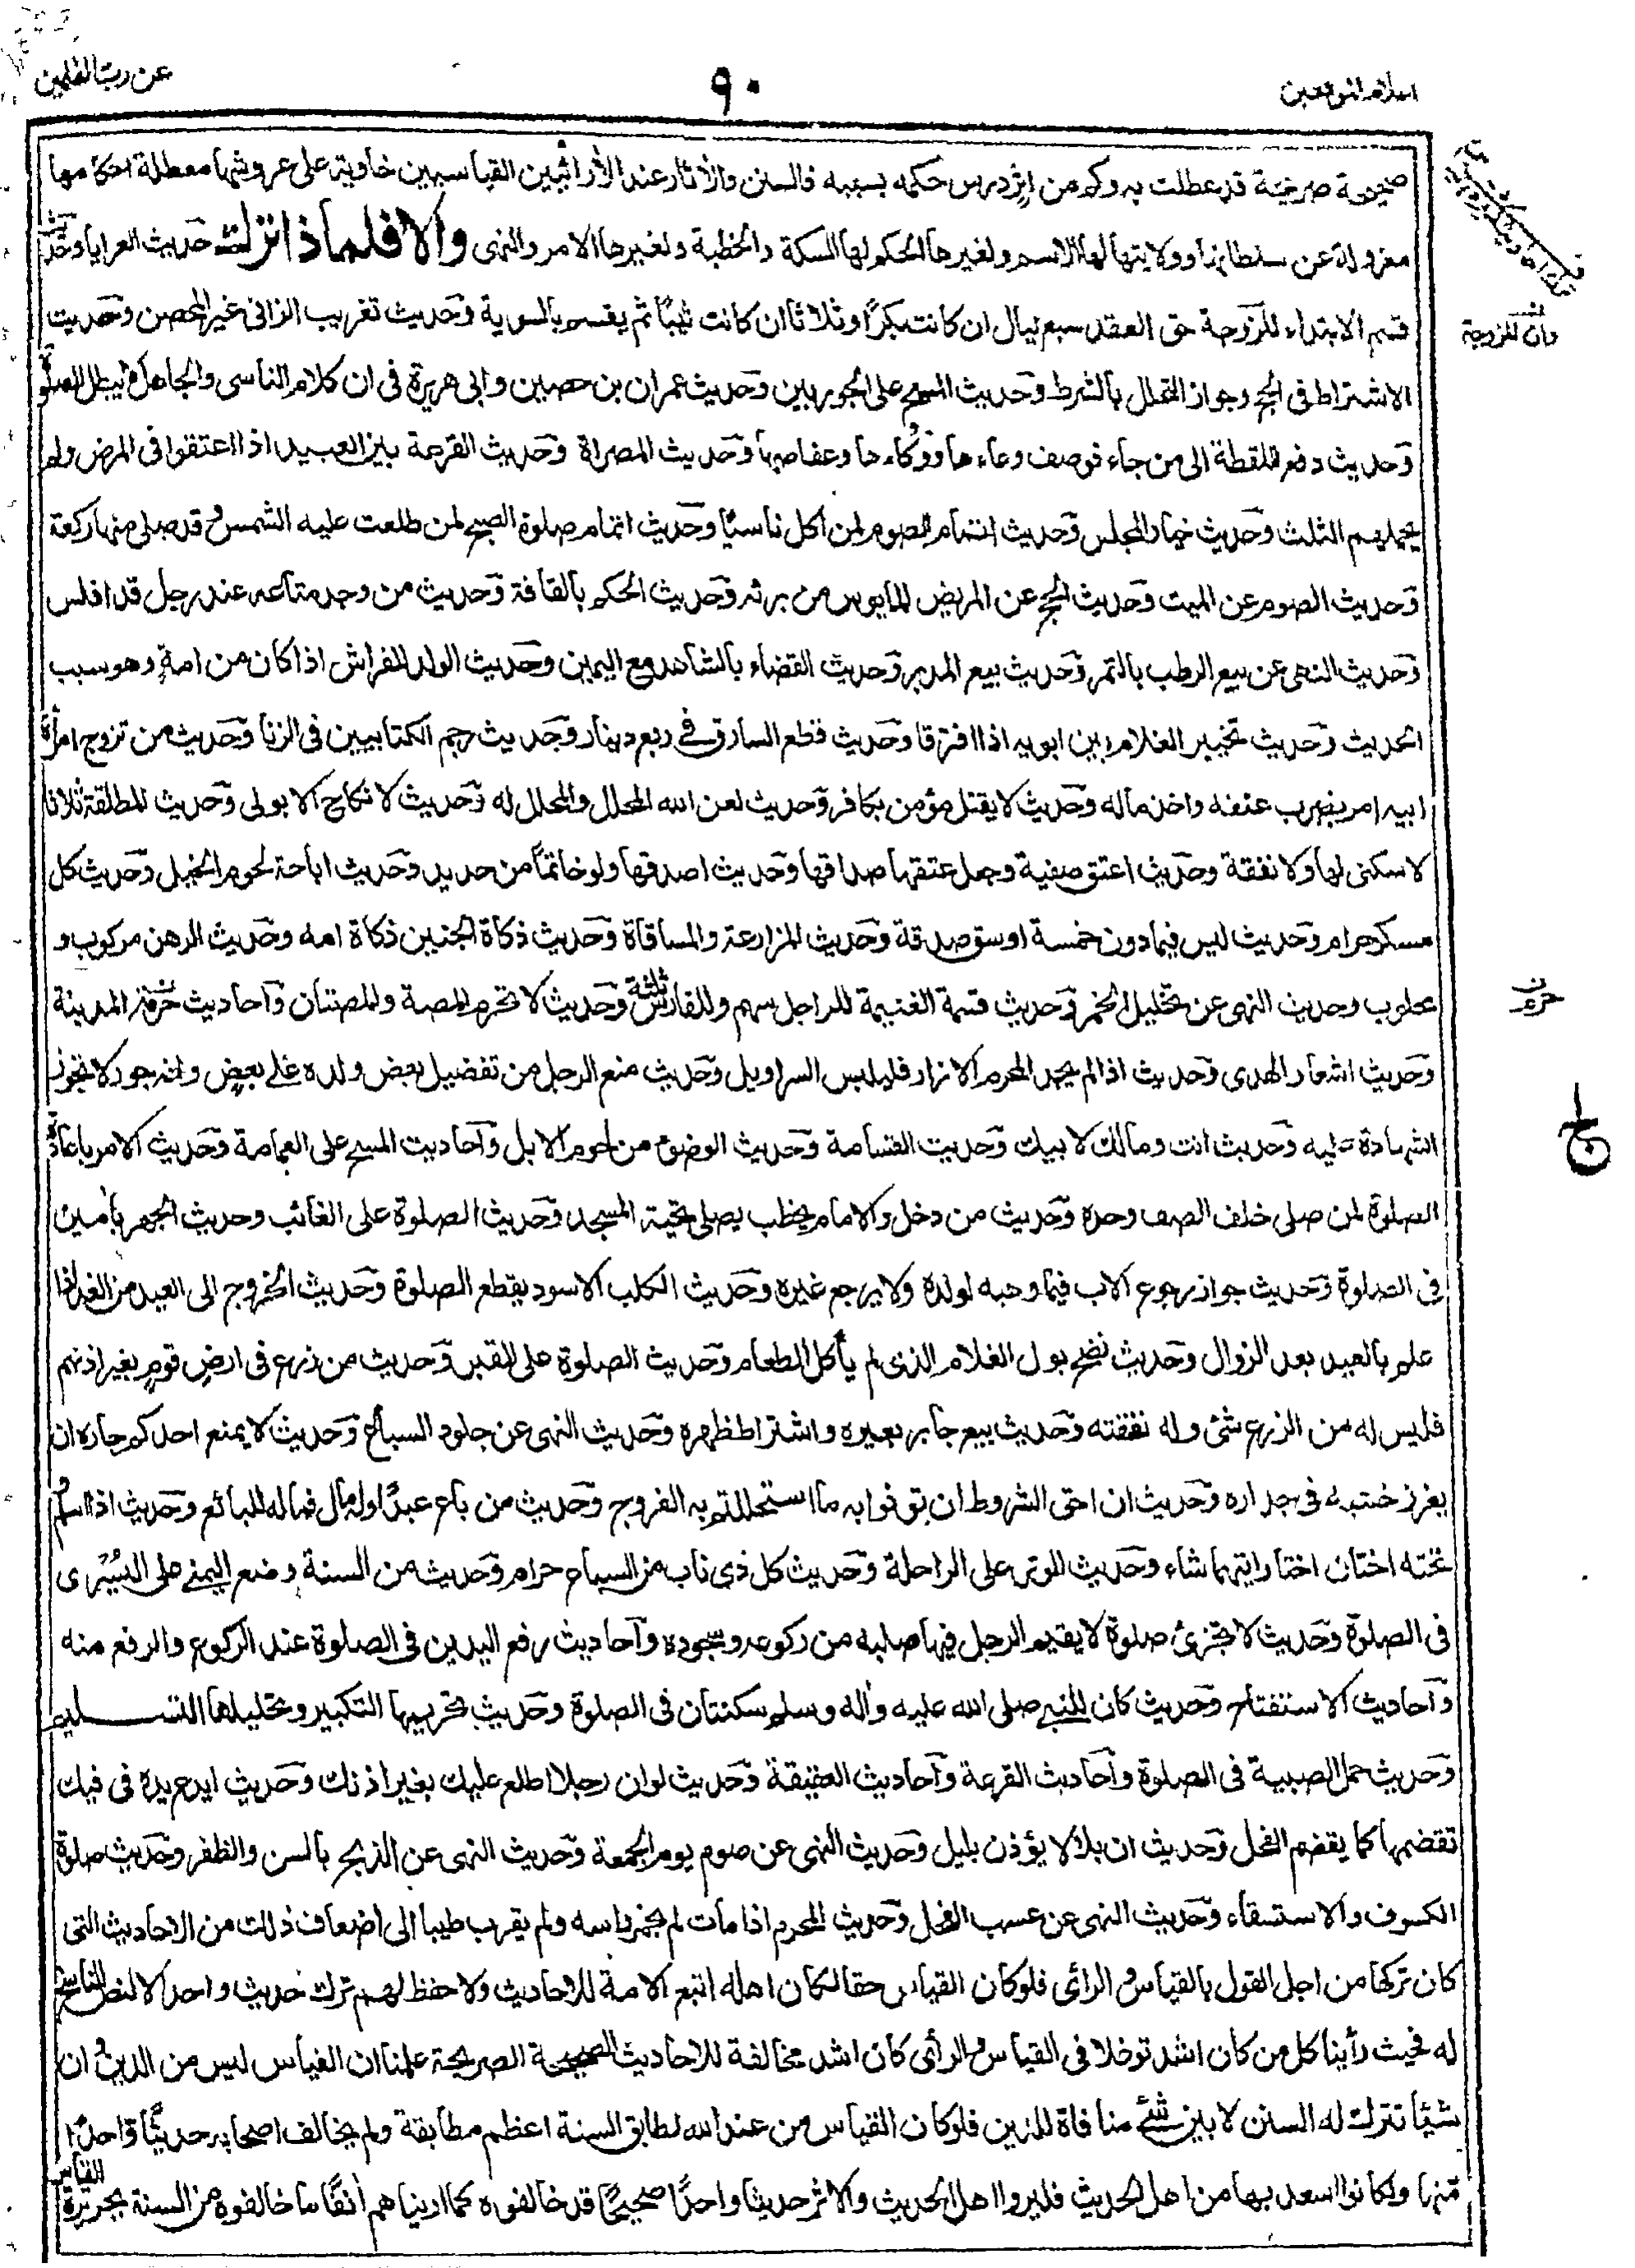 اعلام الموقعين
٩٠
عن رب العلمين
صحيحة صريحة قد عطلت به وكم من اثر درس حكمه بسببه فالسنن والآثار عند الآرائيين القياسيين خاوية على عروشها معطلة احكامها
معزولة عن سلطانها وولايتها لها الاسم ولغيرها الحكم لها السكة والخطبة ولغيرها الامر والنهى والا فلماذا ترك حديث العرايا وحديث
قسم الابتداء للزوجة حق العقد سبع ليال ان كانت بكرًا وثلاثا ان كانت ثيبًا ثم يقسم بالسوية وحديث تغريب الزانى غير المحصن وحديث
الاشتراط فى الحج وجواز التحلل بالشرط وحديث المسح على الجوربين وحديث عمران بن حصين وابى هريرة فى ان كلام الناسى والجاهل لا يبطل الصلوة
وحديث دفع اللقطة الى من جاء فوصف وعاءها ووكاءها وعفاصها وحديث المصراة وحديث القرعة بين العبيد اذا اعتقوا فى المرض ولم
يحملهم الثلث وحديث خيار المجلس وحديث اتمام الصوم لمن اكل ناسيًا وحديث اتمام صلوة الصبح لمن طلعت عليه الشمس وقد صلى منها ركعة
وحديث الصوم عن الميت وحديث الحج عن المريض المايوس من برئه وحديث الحكم بالقافة وحديث من وجد متاعه عند رجل قد افلس
وحديث النهى عن بيع الرطب بالتمر وحديث بيع المدبر وحديث القضاء بالشاهد مع اليمين وحديث الولد للفراش اذا كان من امة وهو سبب
الحديث وحديث تخيير الغلام بين ابويه اذا افترقا وحديث قطع السارق فى ربع دينار وحديث رجم الكتابيين فى الزنا وحديث من تزوج امرأة
ابيه امر بضرب عنقه واخذ ماله وحديث لا يقتل مؤمن بكافر وحديث لعن الله المحلل والمحلل له وحديث لا نكاح الا بولى وحديث المطلقة ثلاثا
لا سكنى لها ولا نفقة وحديث اعتق صفية وجعل عتقها صداقها وحديث اصدقها ولو خاتمًا من حديد وحديث اباحة لحوم الخيل وحديث كل
مسكر حرام وحديث ليس فيما دون خمسة اوسق صدقة وحديث المزارعة والمساقاة وحديث ذكاة الجنين ذكاة امه وحديث الرهن مركوب و
محلوب وحديث النهى عن تخليل الخمر وحديث قسمة الغنيمة للراجل سهم وللفارس ثلثة وحديث لا تحرم المصة والمصتان وآحاديث حرم المدينة
وحديث اشعار الهدى وحديث اذا لم يجد المحرم الازار فليلبس السراويل وحديث منع الرجل من تفضيل بعض ولده على بعض وانه جور لا تجوز
الشهادة عليه وحديث انت ومالك لابيك وحديث القسامة وحديث الوضوء من لحوم الابل وآحاديث المسح على العمامة وحديث الامر باعادة
الصلوة لمن صلى خلف الصف وحده وحديث من دخل والامام يخطب يصلى تحية المسجد وحديث الصلوة على الغائب وحديث الجهر بآمين
فى الصلوة وحديث جواز رجوع الاب فيما وهبه لولده ولا يرجع غيره وحديث الكلب الاسود يقطع الصلوة وحديث الخروج الى العيد من الغد اذا
علم بالعيد بعد الزوال وحديث نضح بول الغلام الذى لم يأكل الطعام وحديث الصلوة على القبر وحديث من زرع فى ارض قوم بغير اذنهم
فليس له من الزرع شئ وله نفقته وحديث بيع جابر بعيره واشتراط ظهره وحديث النهى عن جلود السباع وحديث لا يمنع احدكم جاره ان
يغرز خشبه فى جداره وحديث ان احق الشروط ان توفوا به ما استحللتم به الفروج وحديث من باع عبدًا وله مال فماله للبائع وحديث اذا اسلم و
تحته اختان اختار ايتهما شاء وحديث الوتر على الراحلة وحديث كل ذى ناب من السباع حرام وحديث من السنة وضع اليمنى على اليسرى
فى الصلوة وحديث لا تجزئ صلوة لا يقيم الرجل فيها صلبه من ركوعه وسجوده وآحاديث رفع اليدين فى الصلوة عند الركوع والرفع منه
وآحاديث الاستفتاح وحديث كان للنبى صلى الله عليه وآله وسلم سكتتان فى الصلوة وحديث تحريمها التكبير وتحليلها التسليم
وحديث حمل الصبية فى الصلوة وآحاديث القرعة وآحاديث العقيقة وحديث لو ان رجلا اطلع عليك بغير اذنك وحديث ايدع يده فى فيك
تقضمها كما يقضم الفحل وحديث ان بلالا يؤذن بليل وحديث النهى عن صوم يوم الجمعة وحديث النهى عن الذبح بالسن والظفر وحديث صلوة
الكسوف والاستسقاء وحديث النهى عن عسب الفحل وحديث المحرم اذا مات لم يخمر راسه ولم يقرب طيبا الى اضعاف ذلك من الاحاديث التى
كان تركها من اجل القول بالقياس والرائى فلو كان القياس حقا لكان اهله اتبع الامة للاحاديث ولا حفظ لهم ترك حديث واحد الا لنص الناسخ
له فحيث رأينا كل من كان اشد توغلا فى القياس والرأى كان اشد مخالفة للاحاديث الصحيحة الصريحة علمنا ان القياس ليس من الدين وان
شيئا تترك له السنن لا بين شئ منافاة للدين فلو كان القياس من عند الله لطابق السنة اعظم مطابقة ولم يخالف اصحابه حديثًا واحدًا
منها ولكانوا اسعد بها من اهل الحديث فليروا اهل الحديث والاثر حديثا واحدًا صحيحًا قد خالفوه كما اريناهم آنفًا ما خالفوه من السنة بجريرة القياس
وان للزوجة